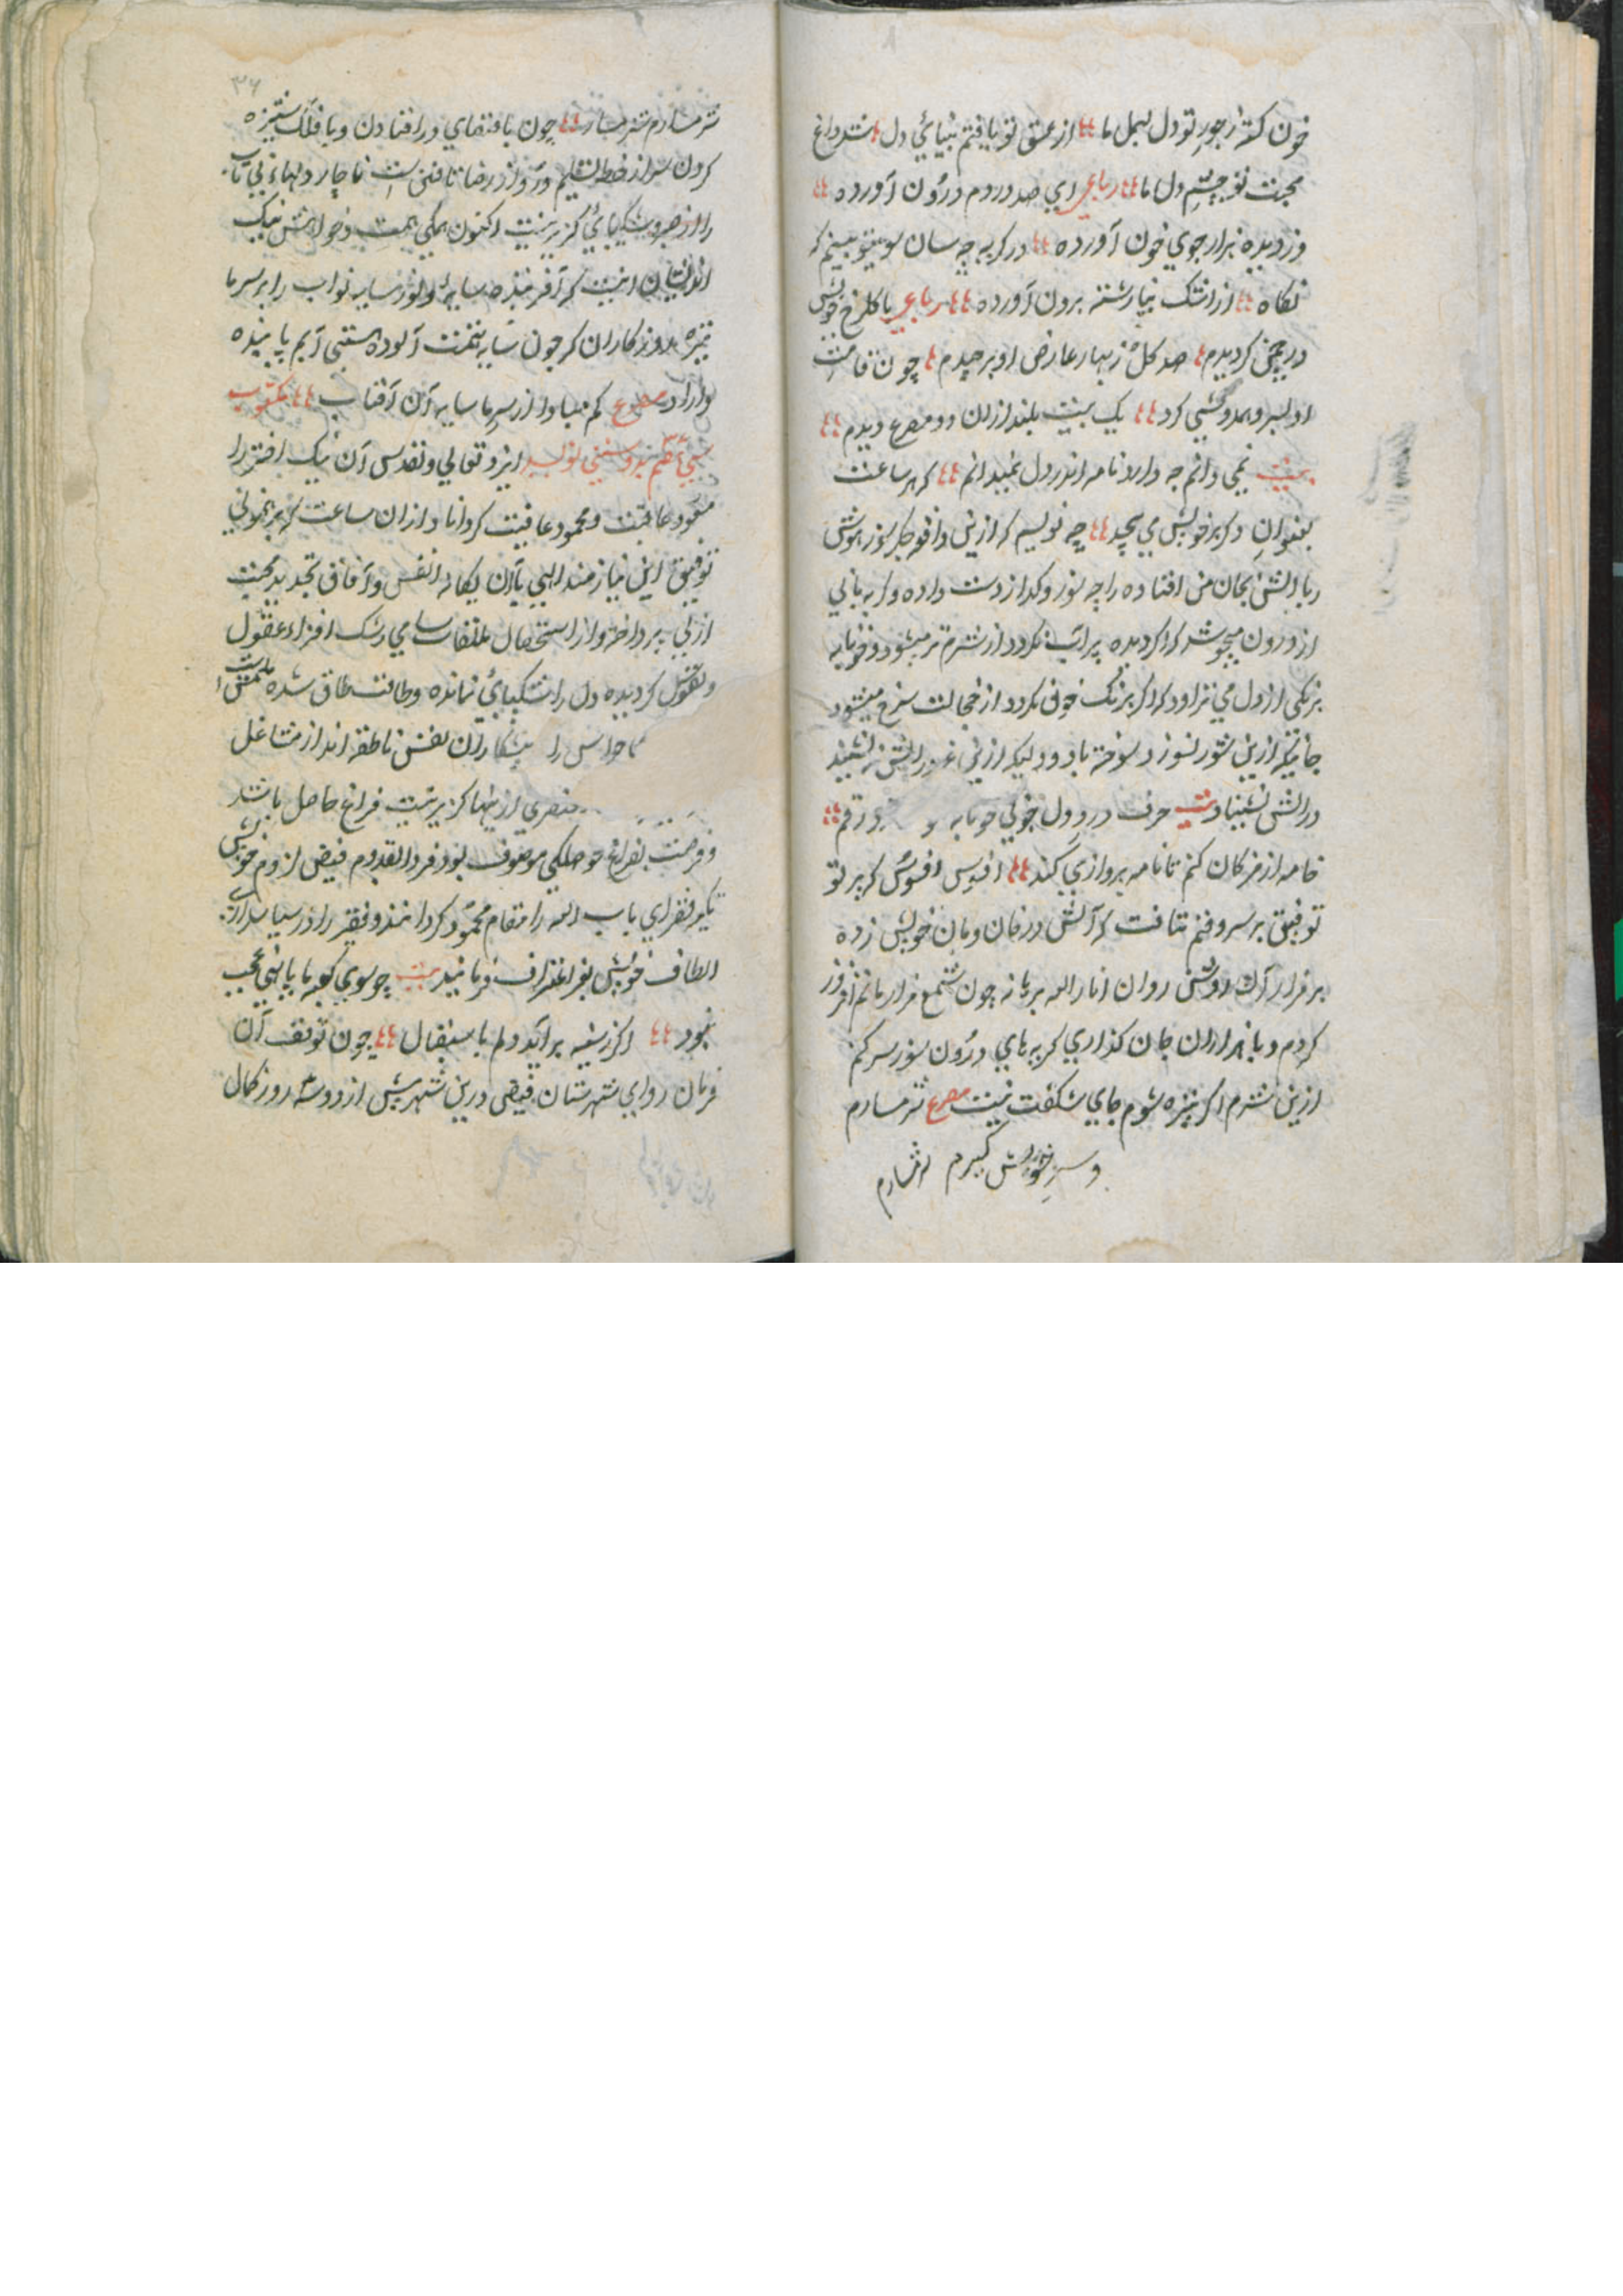 خون کشته ز جور تو دل بسمل ما از عشق تو یافتم بینائی دل شد داغ
محبت تو چشم دل ما رباعی ای صد دردم درون آورده
وز دیده هزار جوی خون آورده در کریه چه سان سویتو بینم که
نکاه از اشک بیا رشته برون آورده رباعی با کلرخ خویش
در چمن کردیدم صد کل ز بهار عارض او بر چیدم چون قامت
او بسرو همدوشی کرد یک بیت بلند ازان دو مصرع دیدم
بیت نمی دانم چه دارد نامه اندر دل نمیدانم که هر ساعت
بعنوان دکر بر خویش می پیچد چه نویسم که ازین واقعه جکر سوز هوش
ربا آتش بجان من افتاده را چه سوز و کداز دست داده و آبه بانی
از درون میجوشد که اکر دیده پر آب نکردد از شرم تر میشود و خونابه
برنکی از دل می تراود که اکر برنک خون نکردد از خجالت سرخ میشود
جانیکه ازین شور نسوزد سوخته باد و دلیکه ازین غم در آتش ننشیند
در آتش نشیناد بیت حرف درد دل خونی خونابه رقم
خامه از مژکان کنم تا نامه پروازی کند افسوس افسوس که پرتو
توفیق بر سر وقتم نتافت که آتش در خان و مان خویش زده
بر مزار آن روشن روان انار الله برهانه چون شمع مزار ماتم افروز
کردم و با هزاران جان کذاری کریه های درون سوز سر کنم
ازین شرم اکر تیره شوم جای شکفت نیست مصرع شرمسارم
و سر خویش کیرم شرمسارم
۳۶
شرمسارم شرمسار چون با قضای در افتادن و با فلک ستیزه
کردن سر از خط تسلیم و رو از رضا تافتن است ناچار دلهاء بی تاب
را از صبر و شکیبائی کزیر نیست اکنون همکی همت و خواهش نیک
اندیشان اینست که آفریننده سایه و نور سایه نواب را بر سر ما
تیره روزکاران که چون سایه بتهمت آلوده هستی آیم پاینده
دارد مصرع کم مبادا از سر ما سایه آن آفتاب مکتوب
ایزد تعالی و تقدس آن نیک اختر را
مسعود عاقبت و محمود عافیت کرداناد ازان ساعت که برهنمونی
توفیق این نیازمند الهی بآن یکانه انفس و آفاق تجدید محبت
ازلی پرداخته و از استحصال ملاقات سامی رشک افزاء عقول
و نفوس کردیده دل را شکیبائی نمانده و طاقت طاق شده
حواس را پیشکاران نفس ناطقه اند از مشاغل
عنصری از ینها کزیر نیست فراغ حاصل باشد
و فرصت بفراخ حوصلکی موصوف بود فردا بقدوم فیض لزوم خویش
تکیه فقرای باب الله را مقام محمود کردانند و فقیر را در سپاسداری
الطاف خویش بفر اعتراف فرمایند بیت چو سوی کعبه ما پا نهی عجب
نبود اکر ز سینه بر آید دلم باستقبال چون توقف آن
فرمان روای شهرستان فیض درین شهر بیش از دو سه روز کمال